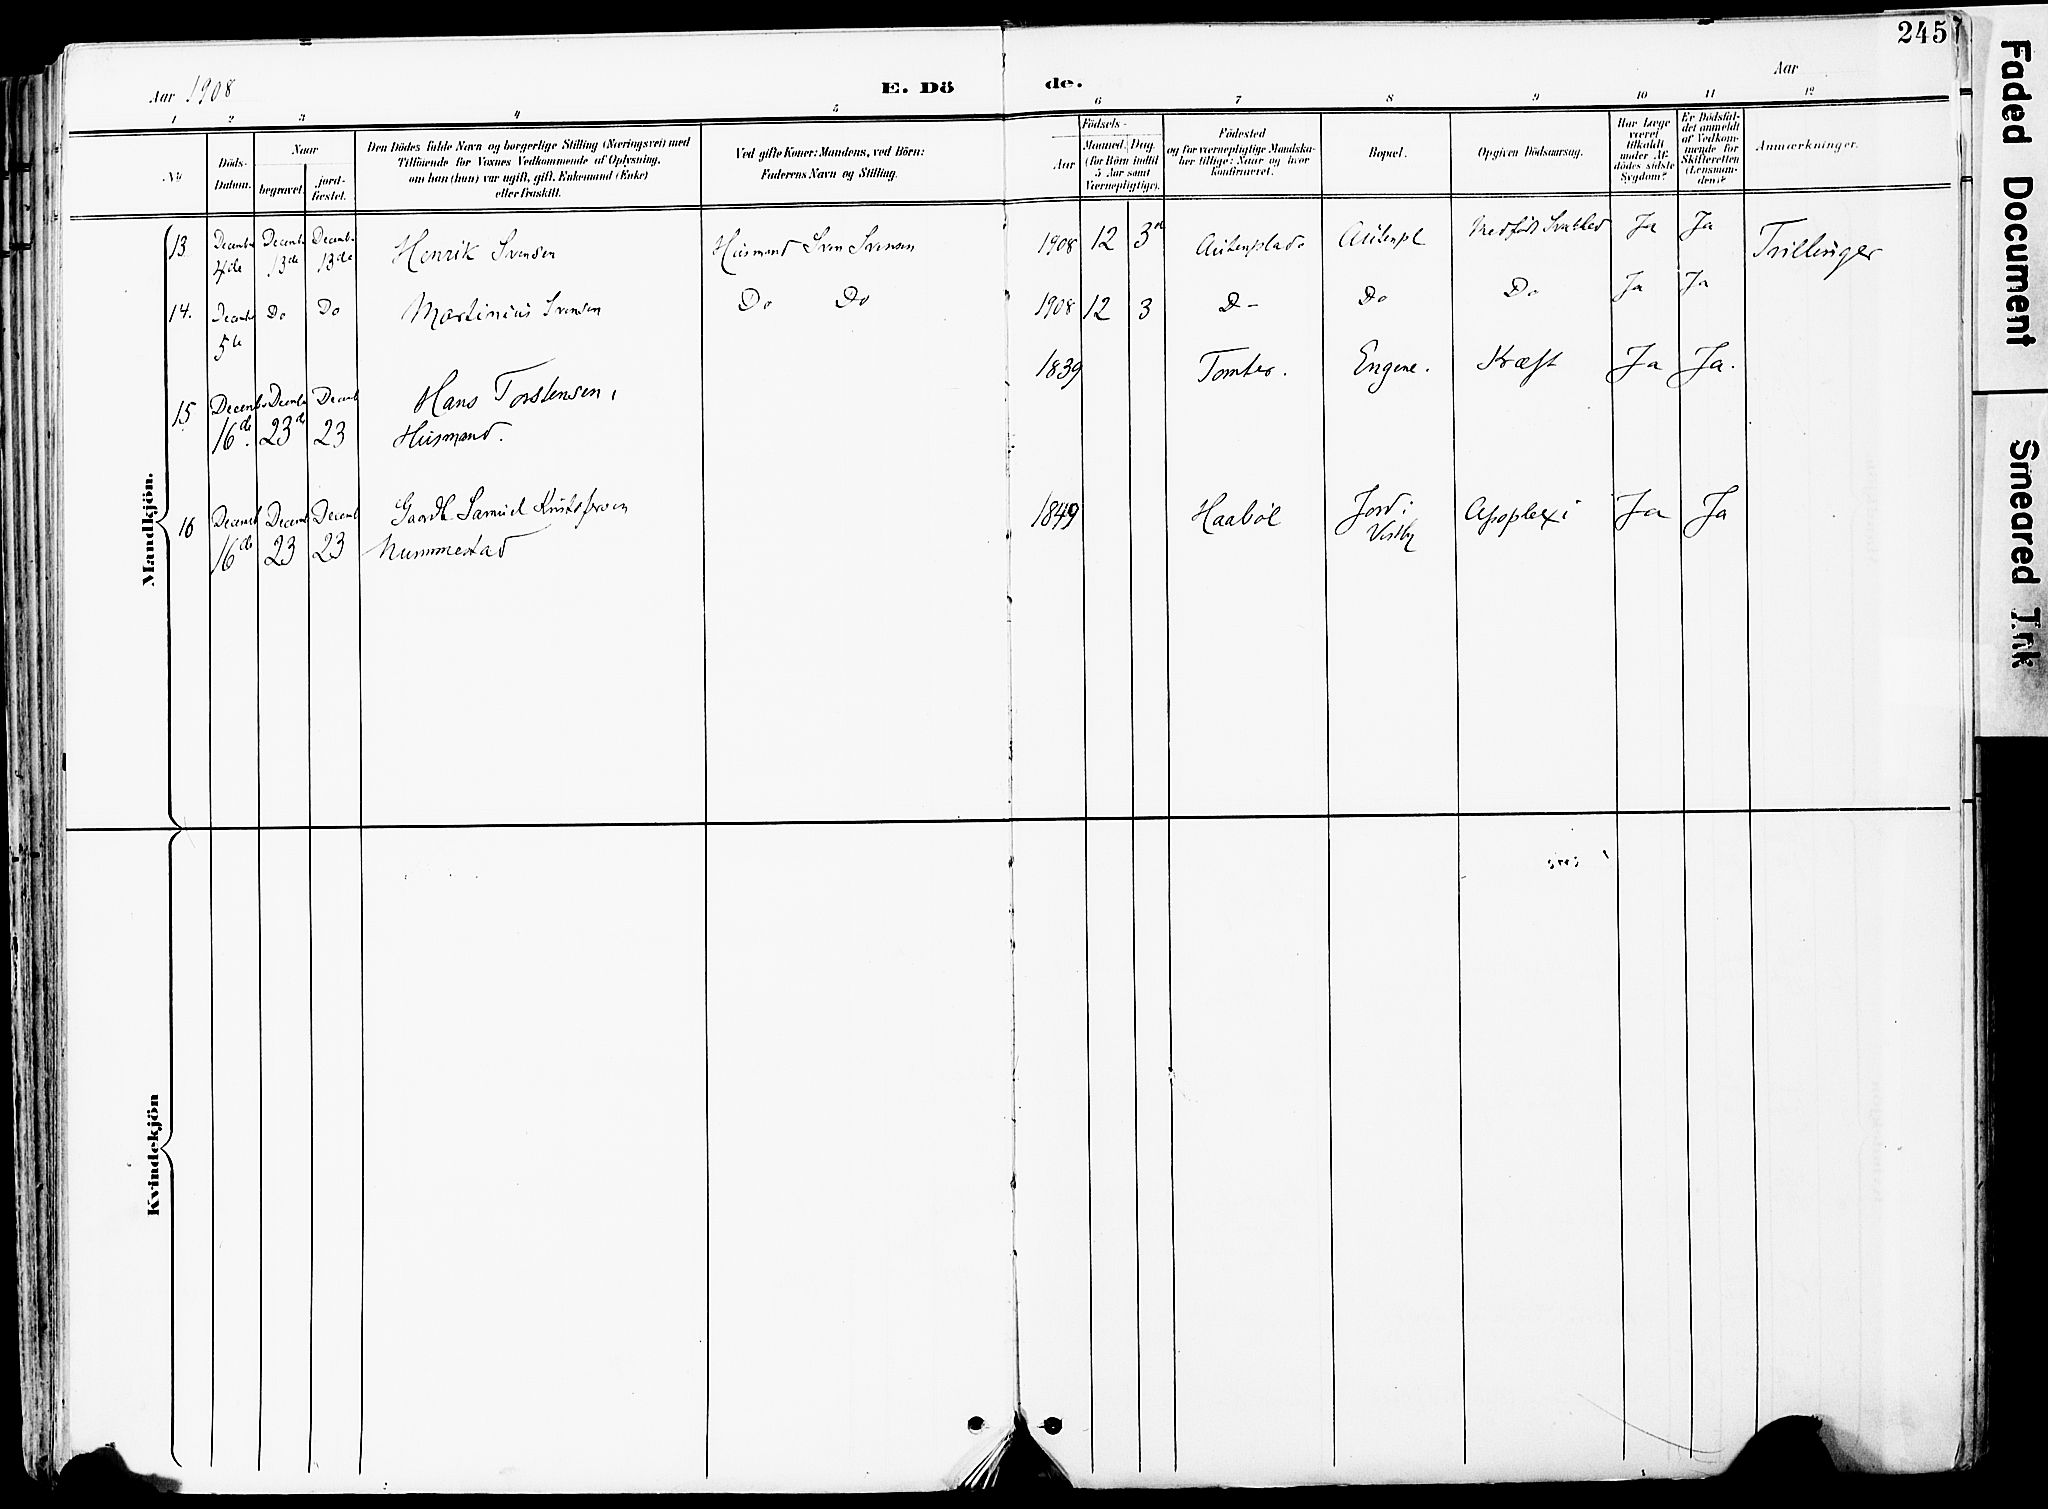 245
Aar 1908
E. Dö
de.
Aar
1 2 3 4 5 6 7 8 9 10 11 12
No
Döds-
Datum.
Naar
begravet.
jord-
fæstet.
Den Dödes fulde Navn og borgerlige Stilling (Næringsvei) med
Tilföiende for Voxnes Vedkommende af Oplysning,
om han (hun) var ugift, gift, Enkemand (Enke)
eller fraskilt.
Ved gifte Koner: Mandens, ved Börn:
Faderens Navn og Stilling.
Födsels-
Aar
Maaned. Dag.
(for Börn indtil
5 Aar samt
Værnepligtige).
Födested
og for værnepligtige Mandska-
ber tillige: Naar og hvor
konfirmeret.
Bopæl.
Opgiven Dödsaarsag.
Har Læge
været
tilkaldt
under Af-
dödes sidste
Sygdom?
Er Dödsfal-
det anmeldt
af Vedkom-
mende for
Skifteretten
(Lensman-
den)?
Anmærkninger.
Mandkjön.
13 Decemb. 4de Decemb. 13de Decemb. 13de Henrik Svensen Husmand Sven Svensen 1908 12 3 Ja Ja Tvillinger
14. Decemb 5te Do Do Martinius Svensen Do Do 1908 12 3 D- Do Do Ja Ja
15 Decemb. 16de. Decemb 23de Decemb 23 Hans Torstensen, 1839 Tomter. Engene. Kræft Ja Ja.
Husmand.
16 Decemb 16de Decemb 23 Decemb 23 Gaardb. Samuel Kristofersen 1849 Haabøl Jord i Apoplexi Ja Ja
Nummestad Vestby
Kvindekjön
Faded Document
Smeared Ink